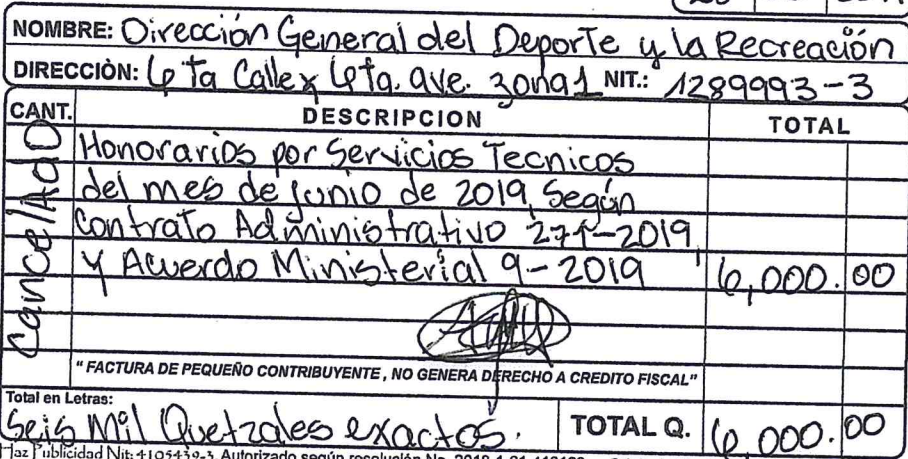 NOMBRE: Dirección General del Deporte y la Recreación
DIRECCIÒN: 6ta Calle y 6ta. ave. zona 1 NIT.: 1289993-3
CANT. DESCRIPCION TOTAL
Cancelado
Honorarios por Servicios Tecnicos
del mes de junio de 2019, Según
Contrato Administrativo 271-2019,
y Acuerdo Ministerial 9-2019 6,000.00
"FACTURA DE PEQUEÑO CONTRIBUYENTE, NO GENERA DERECHO A CREDITO FISCAL"
Total en Letras:
Seis Mil Quetzales exactos. TOTAL Q. 6,000.00
Haz Publicidad Nit: 4105439-3 Autorizado según resolución No.